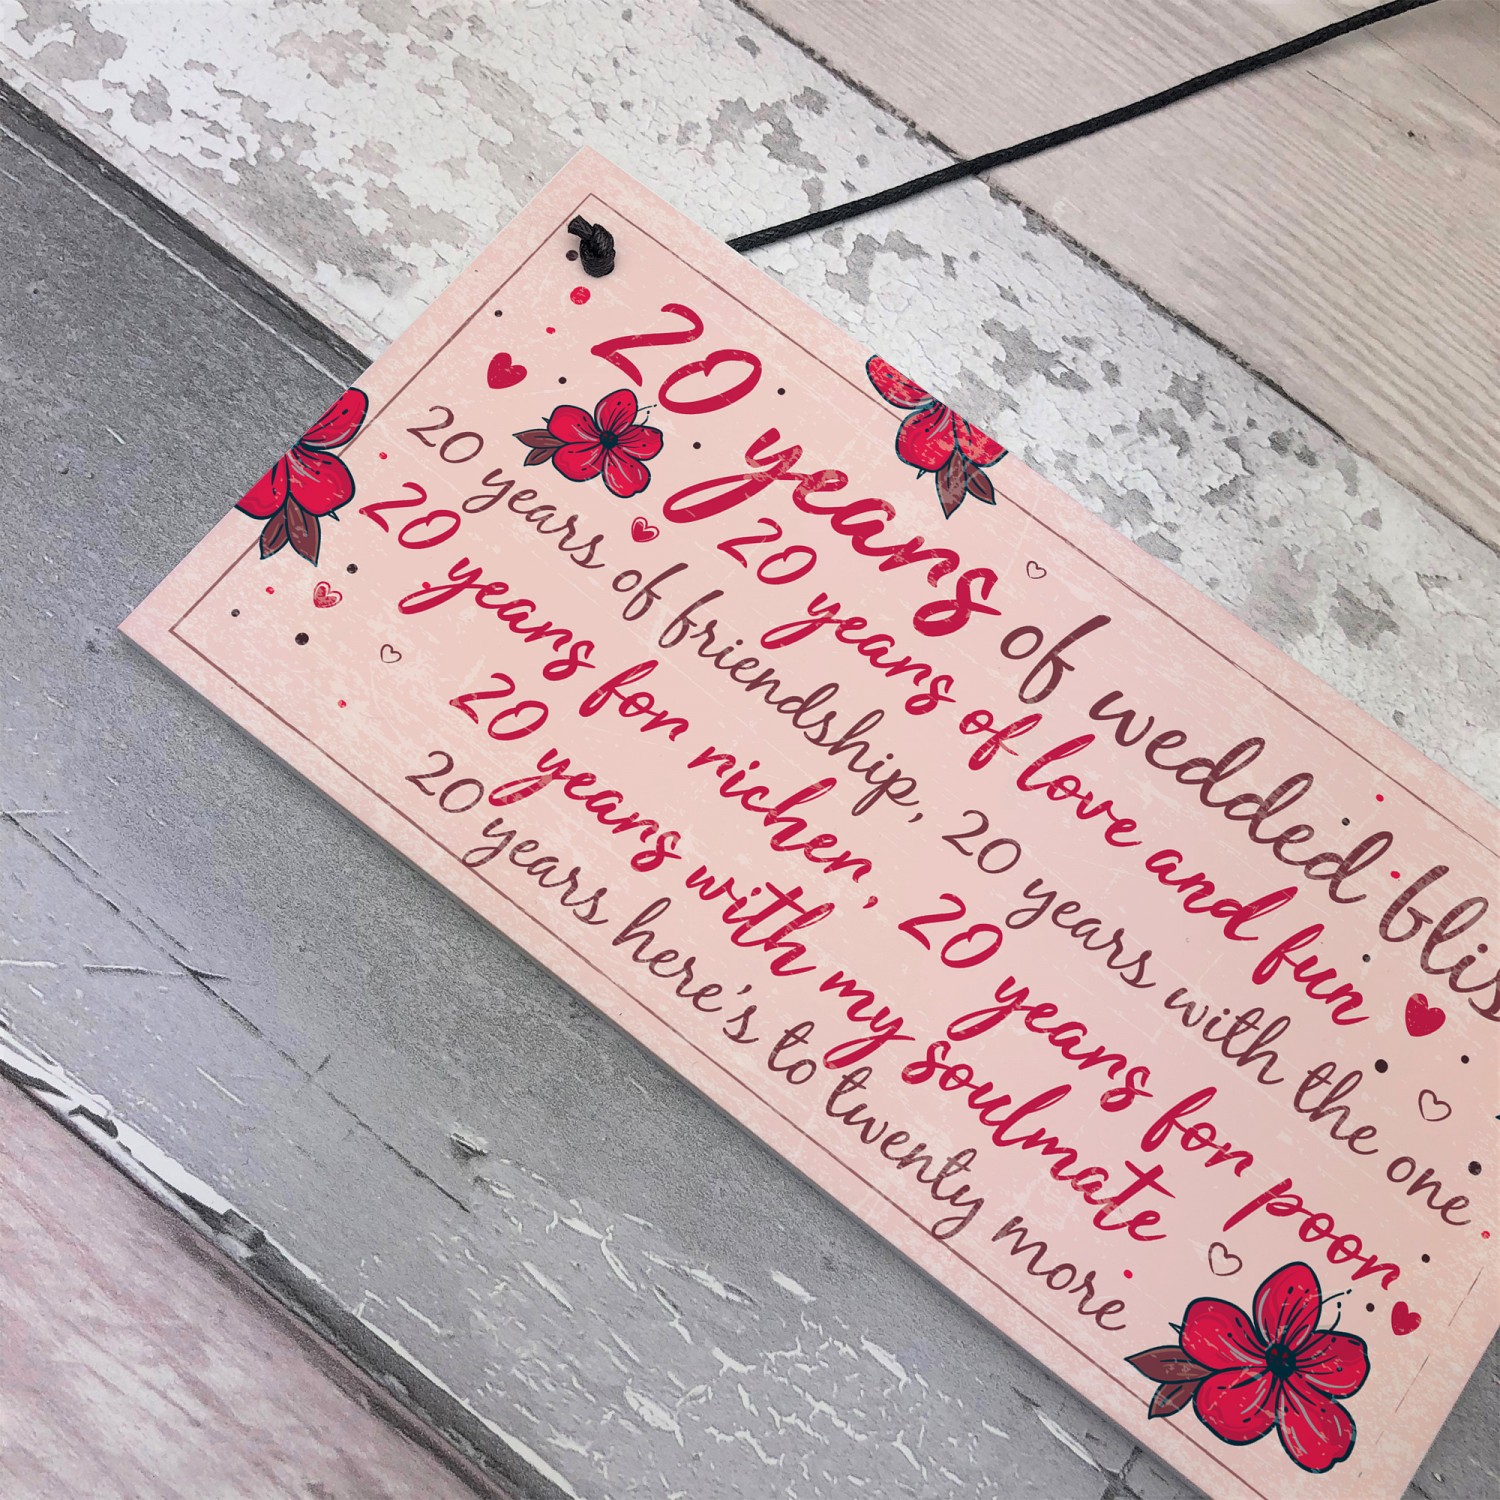 20 years of wedded blis
20 years of love and fun
20 years of friendship, 20 years with the one
20 years for richer, 20 years for poor
20 years with my soulmate
20 years here's to twenty more